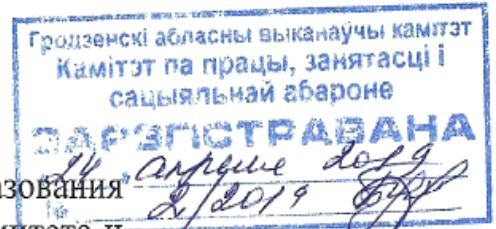 Гродзенскі абласны выканаўчы камітэт
Камітэт па працы, занятасці і
сацыяльнай абароне
ЗАРЭГІСТРАВАНА
24 апреля 2019
№ 2/2019
азования
митета и